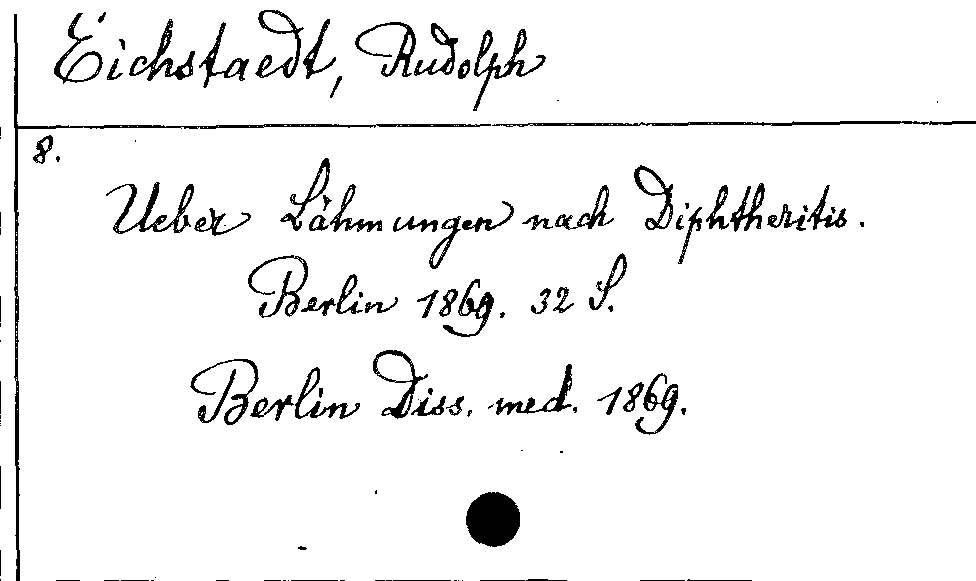 Eichstaedt, Rudolph
8.
Ueber Lähmungen nach Diphtheritis.
Berlin 1869. 32 S.
Berlin Diss. med. 1869.